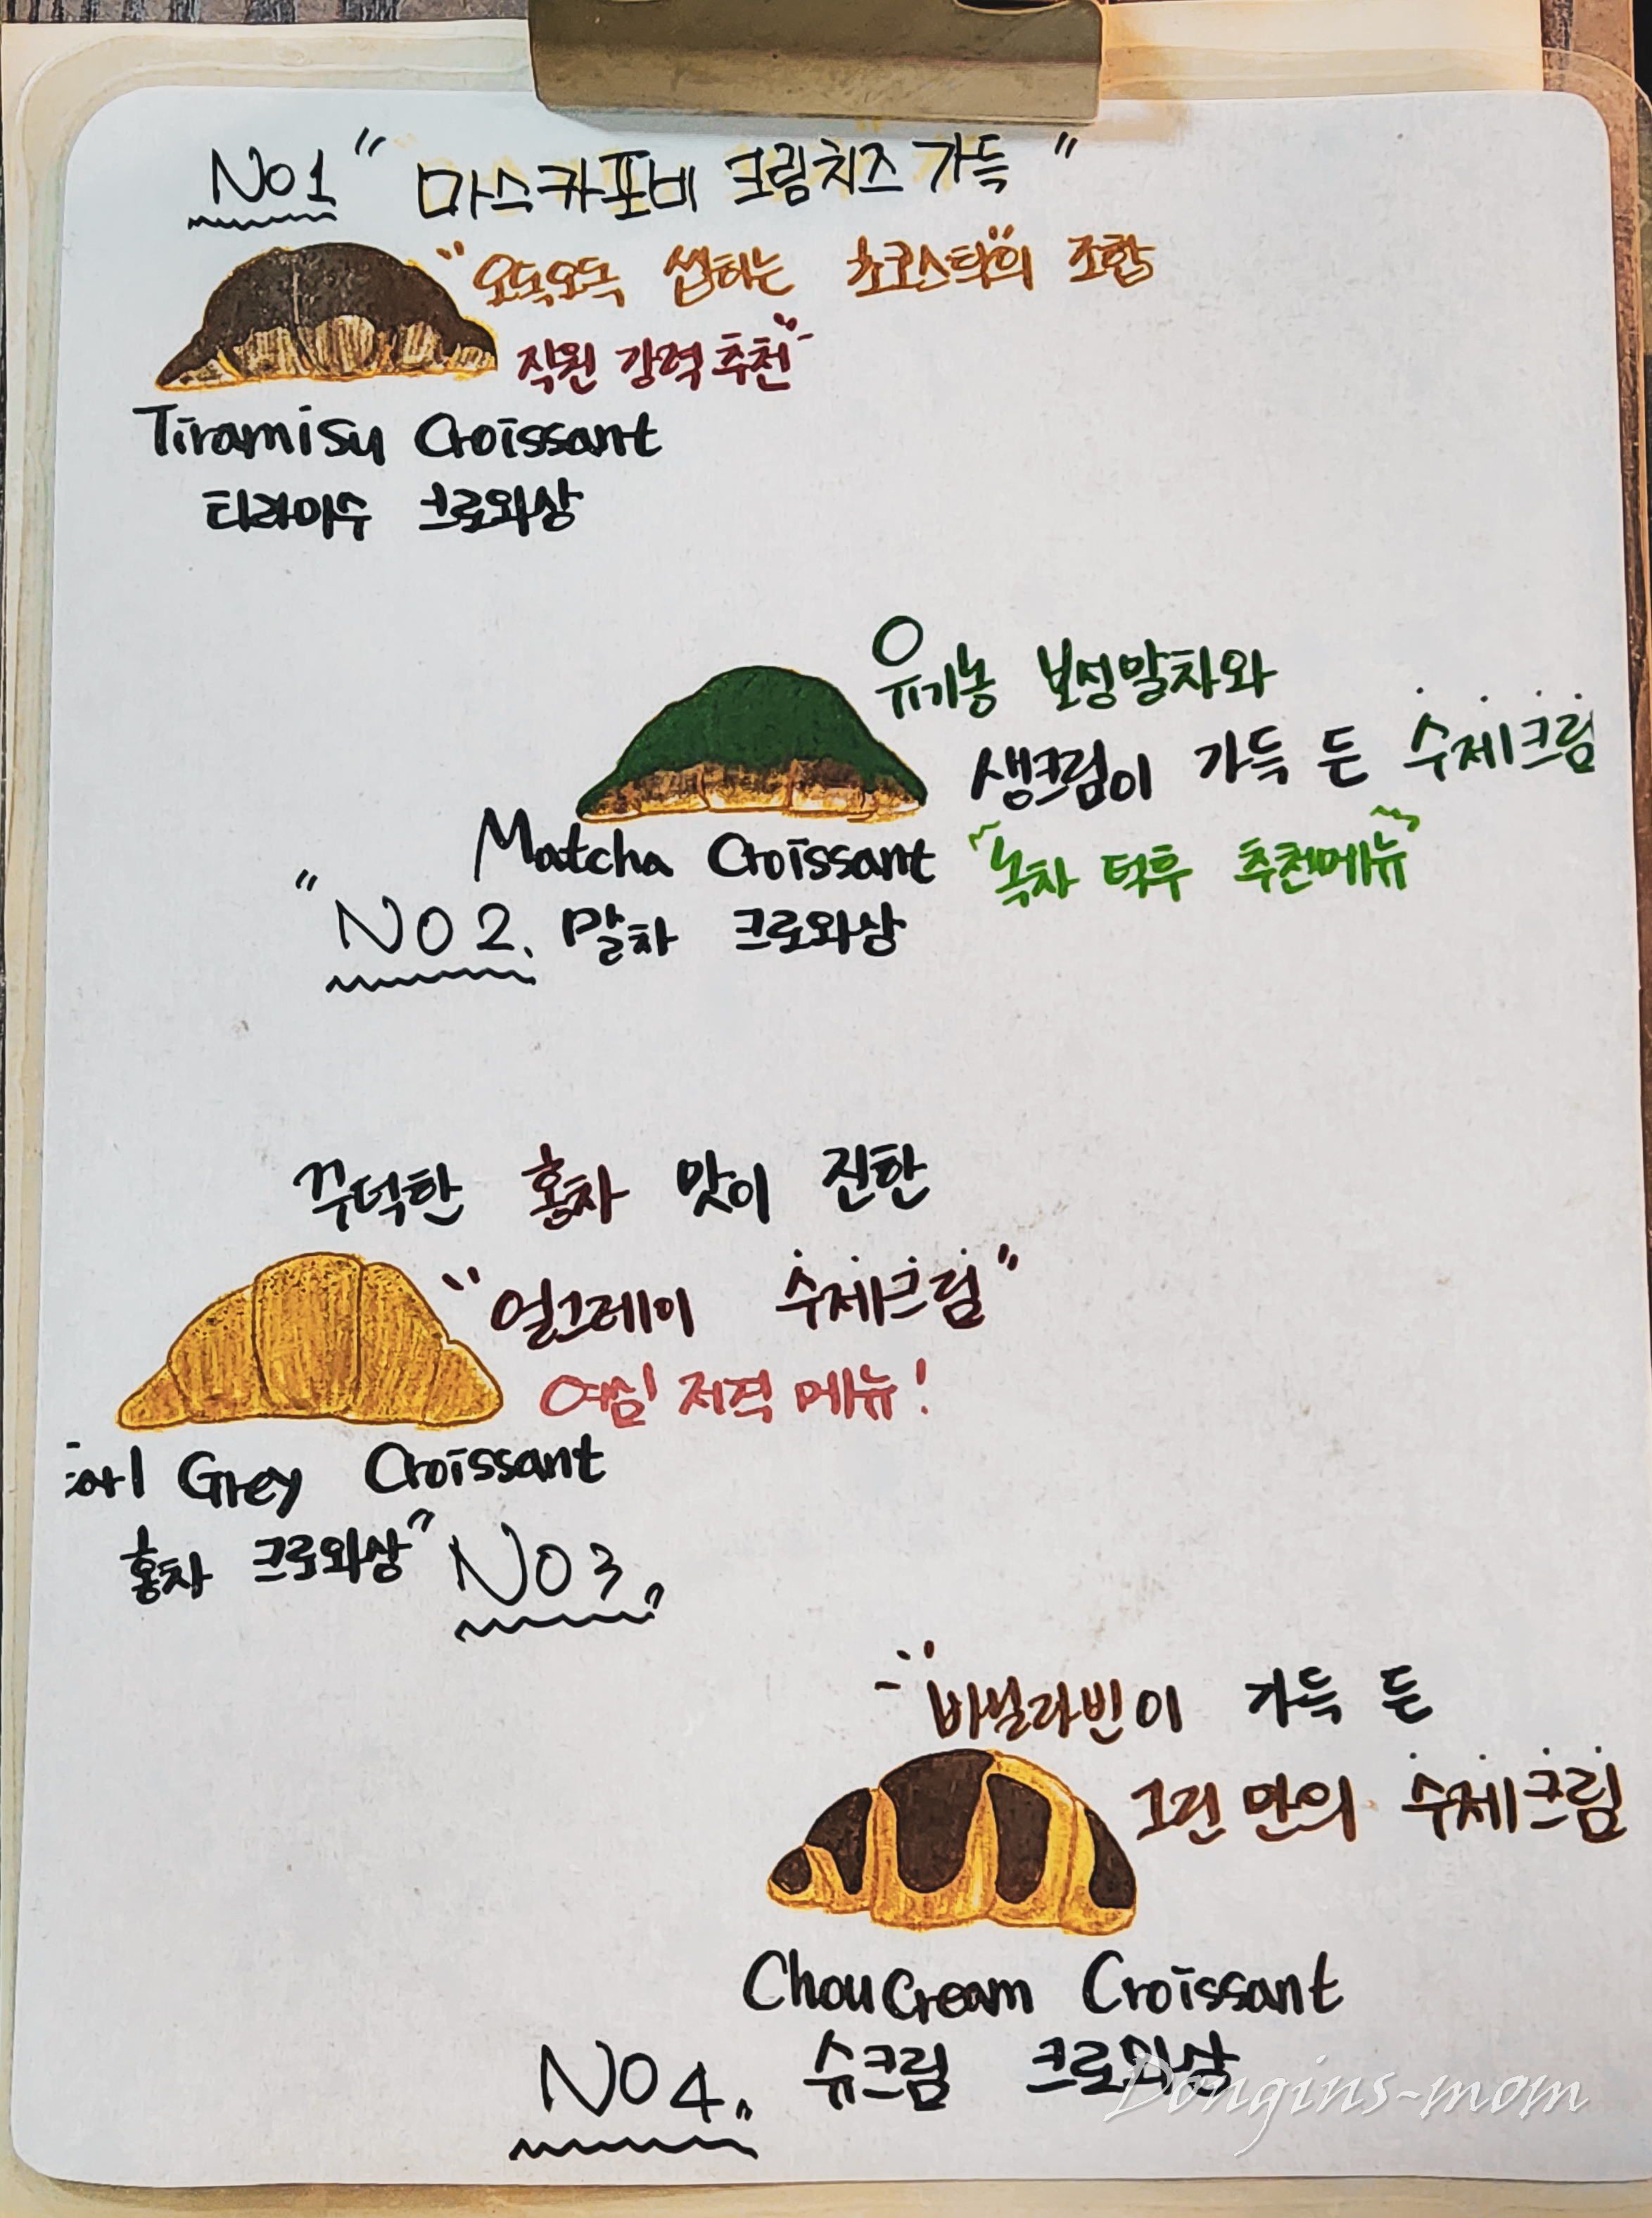 No1 " 마스카포비 크림치즈 가득 "
"오독오독 씹하는 초코스틱"의 조합
직원 강력추천"
Tiramisu Croissant
티라미수 크로와상
유기농 보성말차와
생크림이 가득 든 수제크림
Matcha Croissant "녹차 덕후 추천메뉴"
"NO 2. 말차 크로와상
꾸덕한 홍차 맛이 진한
"얼그레이 수제크림"
여심 저격 메뉴!
Grey Croissant
홍차 크로와상" NO 3."
"바닐라빈이 가득 든
수제크림
Chou Cream Croissant
NO 4." 슈크림 크로와상
Dongins-mom